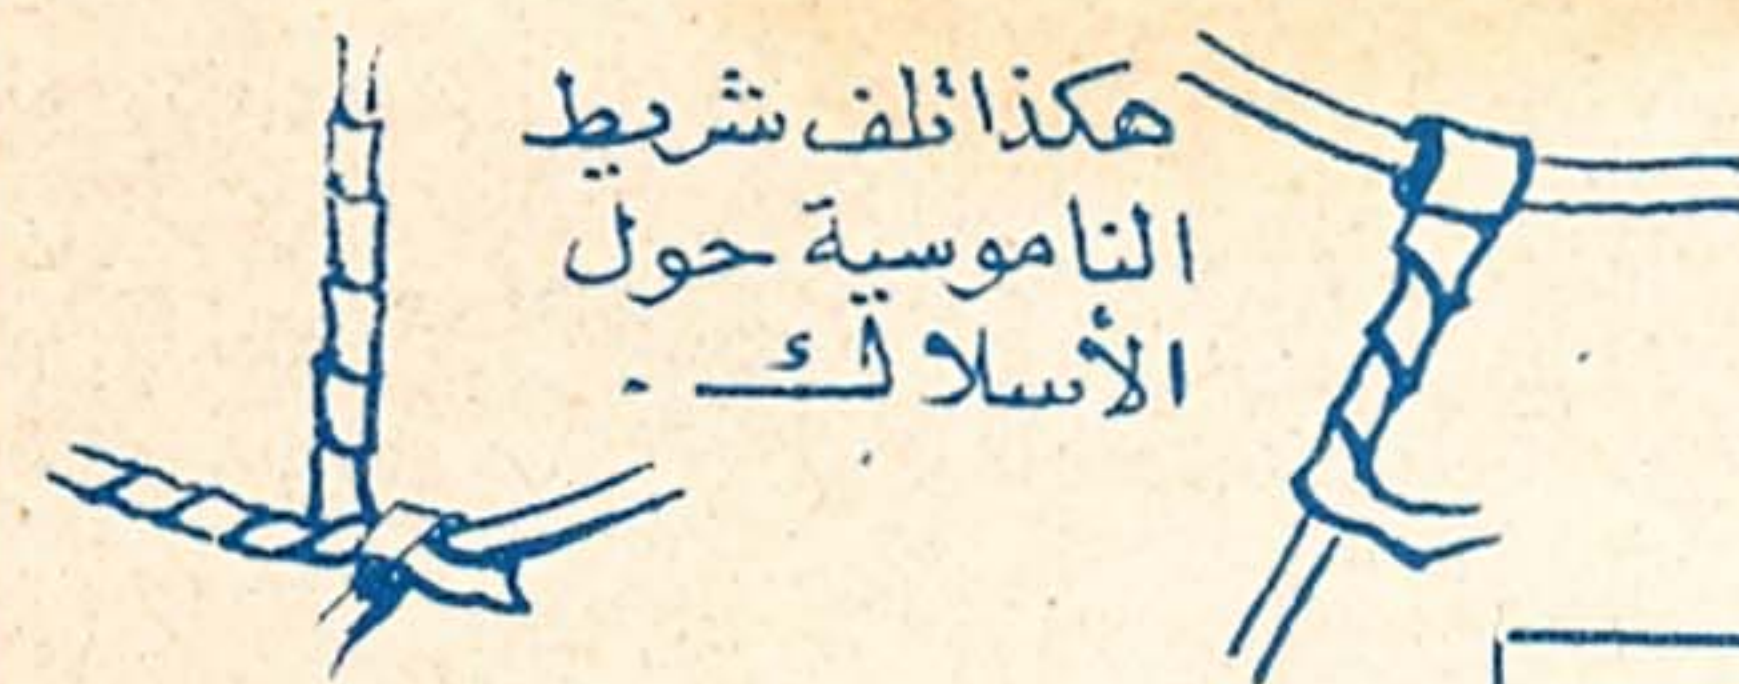 هكذا تلف شريط
الناموسية حول
الأسلاك .